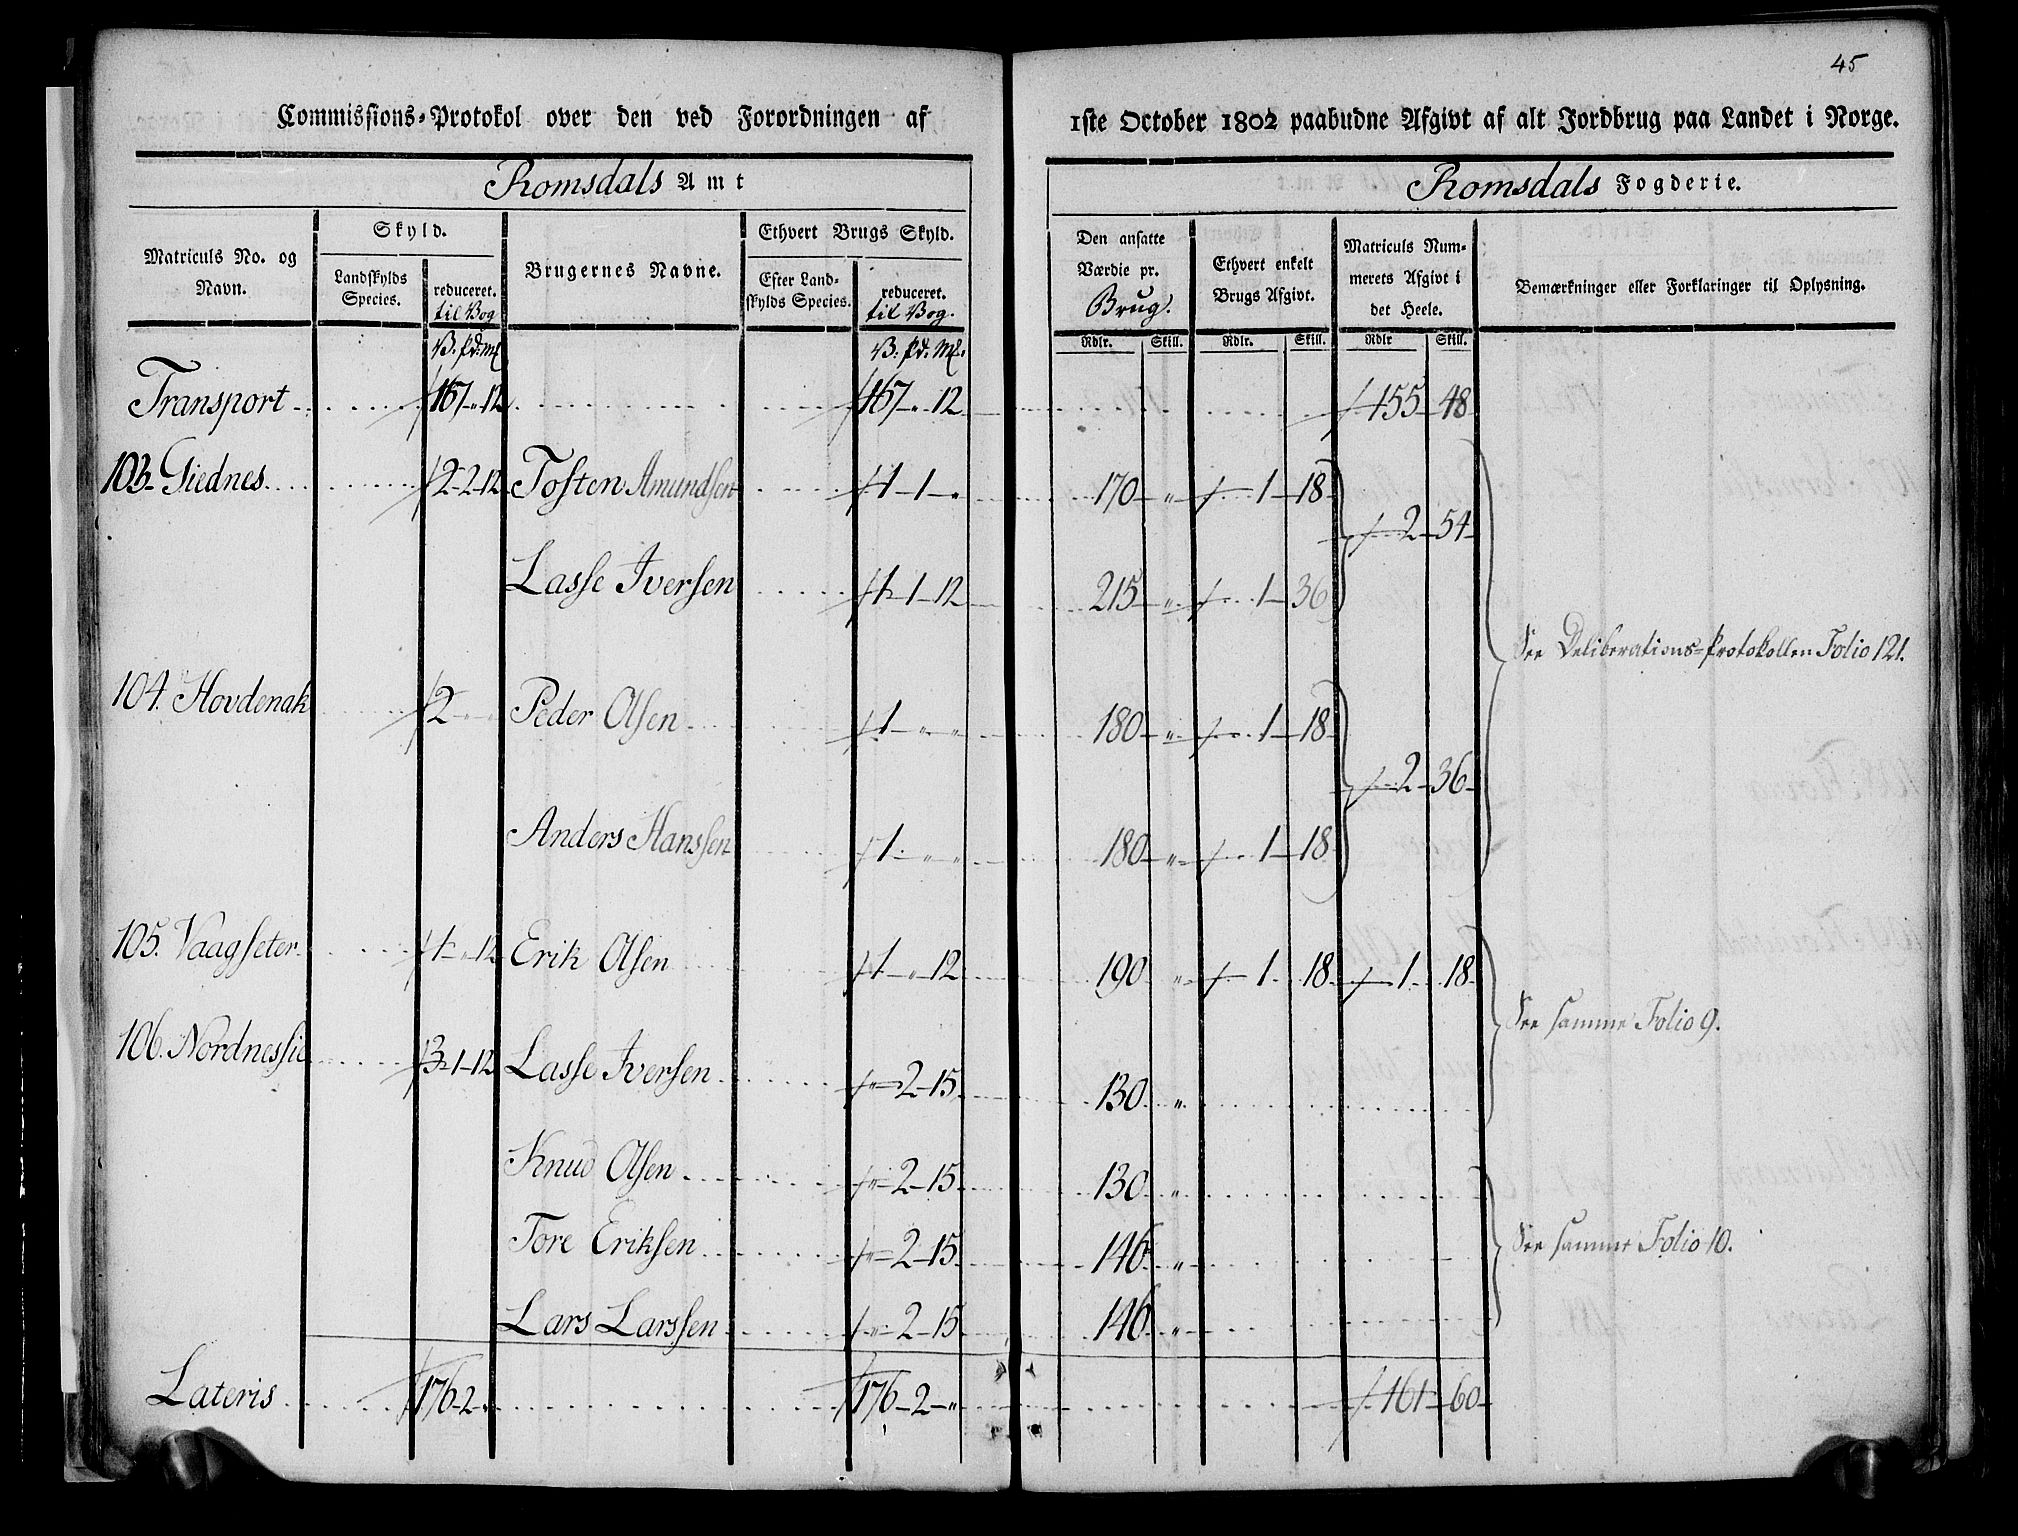 45
Commissions-Protokol over den ved Forordningen af 1ste October 1802 paabudne Afgivt af alt Jordbrug paa Landet i Norge.
Romsdals Amt
Romsdals Fogderie.
Matriculs No. og Navn.
Skyld.
Landskylds Species.
reduceret. til Bog
Brugernes Navne.
Ethvert Brugs Skyld.
Efter Landskylds Species.
reduceret. til Bog.
Den ansatte Værdie pr. Brug.
Ethvert enkelt Brugs Afgivt.
Matriculs Nummerets Afgivt i det Heele.
Bemærkninger eller Forklaringer til Oplysning.
B. Pd. Mk B. Pd. Mk. Rdlr. Skill. Rdlr. Skill. Rdlr Skill.
Transport 167 " 12 167 " 12 155 48
103. Giednes 2 2 12 Tosten Amundsen 1 1 " 170 " 1 18
2 54
Lasse Iversen 1 1 12 215 " 1 36
See Deliberations-Protokollen Folio 121.
104. Hovdenak 2 " " Peder Olsen 1 " " 180 " 1 18
2 36
Anders Hanssen 1 " " 180 " 1 18
105. Vaagseter 1 " 12 Erik Olsen 1 " 12 190 " 1 18 1 18
See samme Folio 9.
106. Nordnessie 3 1 12 Lasse Iversen " 2 15 130 "
Knud Olsen " 2 15 130 "
Tore Eriksen " 2 15 146 "
See samme Folio 10.
Lars Larssen " 2 15 146 "
Lateris 176 2 " 176 2 " 161 60